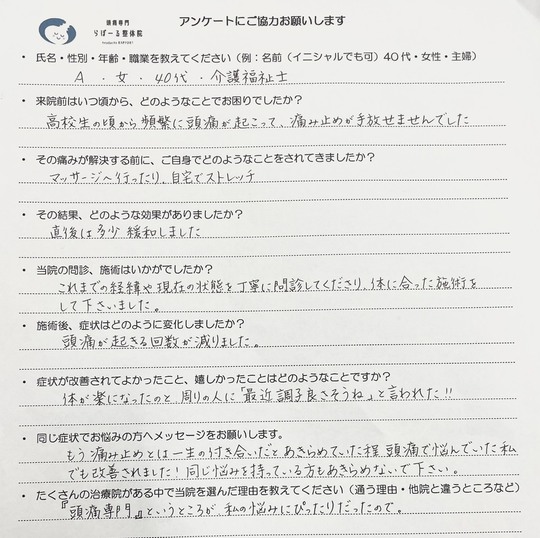 頭痛専門
らぽーる整体院
アンケートにご協力お願いします
・氏名・性別・年齢・職業を教えてください（例：名前（イニシャルでも可）40代・女性・主婦）
A・女・40代・介護福祉士
・来院前はいつ頃から、どのようなことでお困りでしたか？
高校生の頃から頻繁に頭痛が起こって、痛み止めが手放せませんでした
・その痛みが解決する前に、ご自身でどのようなことをされてきましたか？
マッサージへ行ったり、自宅でストレッチ
・その結果、どのような効果がありましたか？
直後は多少緩和しました
・当院の問診、施術はいかがでしたか？
これまでの経緯や現在の状態を丁寧に問診してくださり、体に合った施術を
して下さいました。
・施術後、症状はどのように変化しましたか？
頭痛が起きる回数が減りました。
・症状が改善されてよかったこと、嬉しかったことはどのようなことですか？
体が楽になったのと、周りの人に「最近調子良さそうね」と言われた!!
・同じ症状でお悩みの方へメッセージをお願いします。
もう痛み止めとは一生の付き合いだとあきらめていた程頭痛で悩んでいた私
でも改善されました！同じ悩みを持っている方もあきらめないで下さい。
・たくさんの治療院がある中で当院を選んだ理由を教えてください（通う理由・他院と違うところなど）
『頭痛専門』というところが、私の悩みにぴったりだったので。